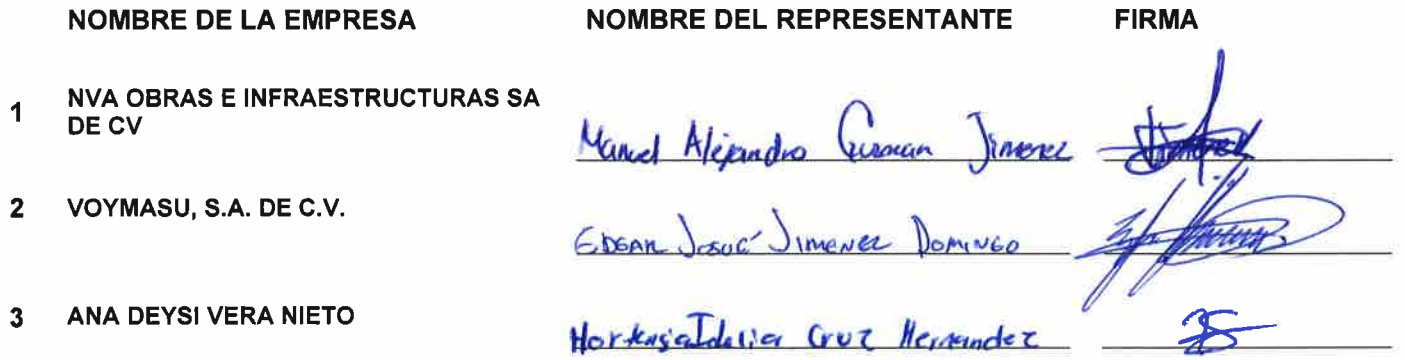 NOMBRE DE LA EMPRESA NOMBRE DEL REPRESENTANTE FIRMA
1 NVA OBRAS E INFRAESTRUCTURAS SA
DE CV
Manuel Alejandro Guzman Jimenez
2 VOYMASU, S.A. DE C.V.
EDGAR JOSUÉ JIMENEZ DOMINGO
3 ANA DEYSI VERA NIETO
Hortensia Idelia Cruz Hernandez